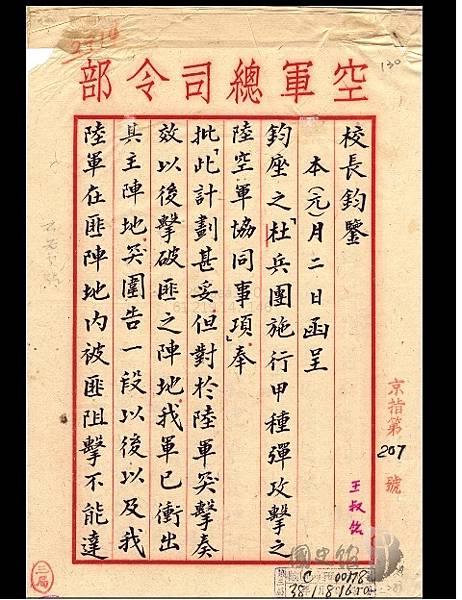 空軍總司令部
校長鈞鑒
本(元)月二日函呈
鈞座之「杜兵團施行甲種彈攻擊之
陸空軍協同事項」奉
批「此計劃甚妥但對於陸軍突擊奏
效以後擊破匪之陣地我軍已衝出
其主陣地突圍告一段以後以及我
陸軍在匪陣地內被匪阻擊不能達
京指第207號
王叔銘
三局
130